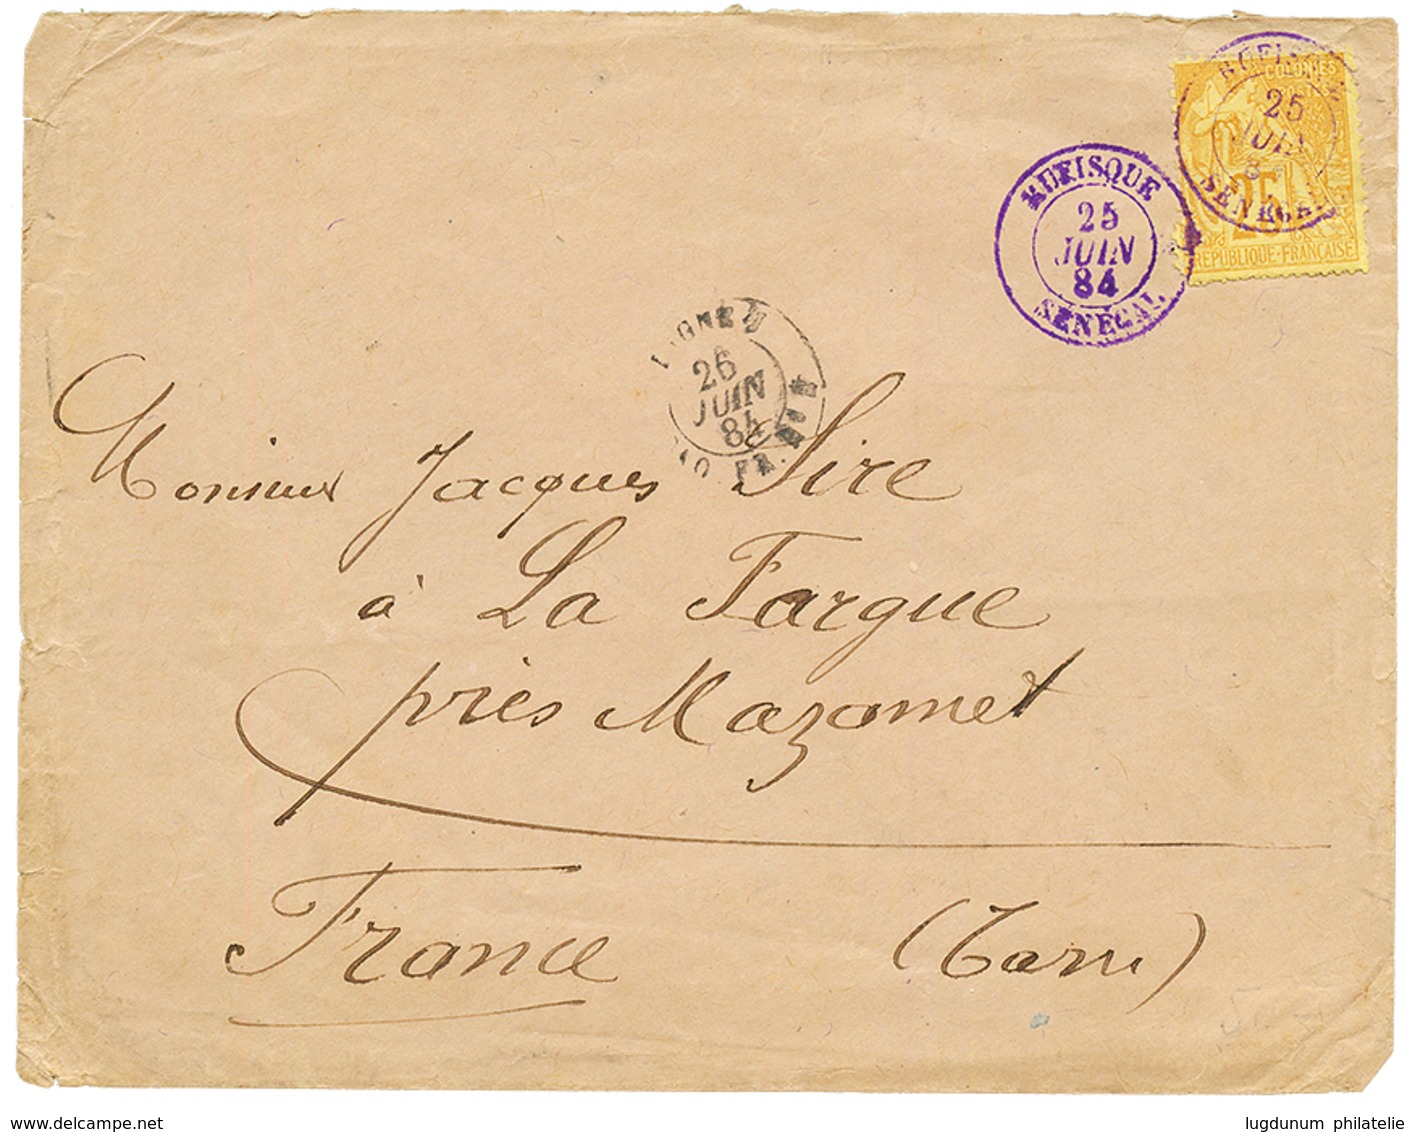 RUFISQUE
25
JUIN
84
SENEGAL
COLONIES
25
REPUBLIQUE FRANÇAISE
RUFISQUE
25
JUIN
SENEGAL
LIGNE J
26
JUIN
84
PAQ. FR. N° 1
Monsieur Jacques Sire
à La Fargue
près Mazamet
France (Tarn)
www.delcampe.net
lugdunum philatelie